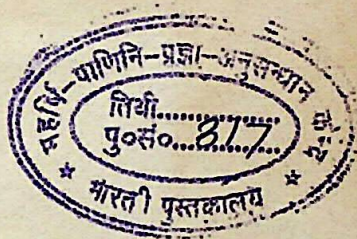 महर्षि-पाणिनि-प्रज्ञा-अनुसन्धान केन्द्र
तिथी..............
पु०सं०...317.....
* भारती पुस्तकालय *